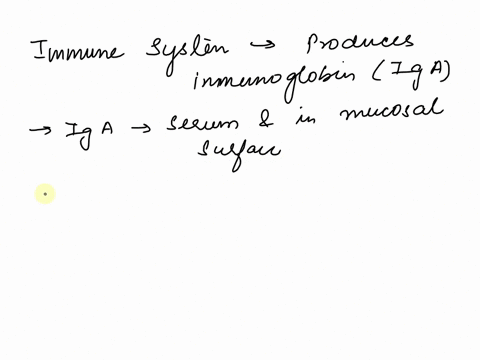 Immune System → Produces
inmunoglobin (IgA)
→ IgA → Serum & in mucosal
surface